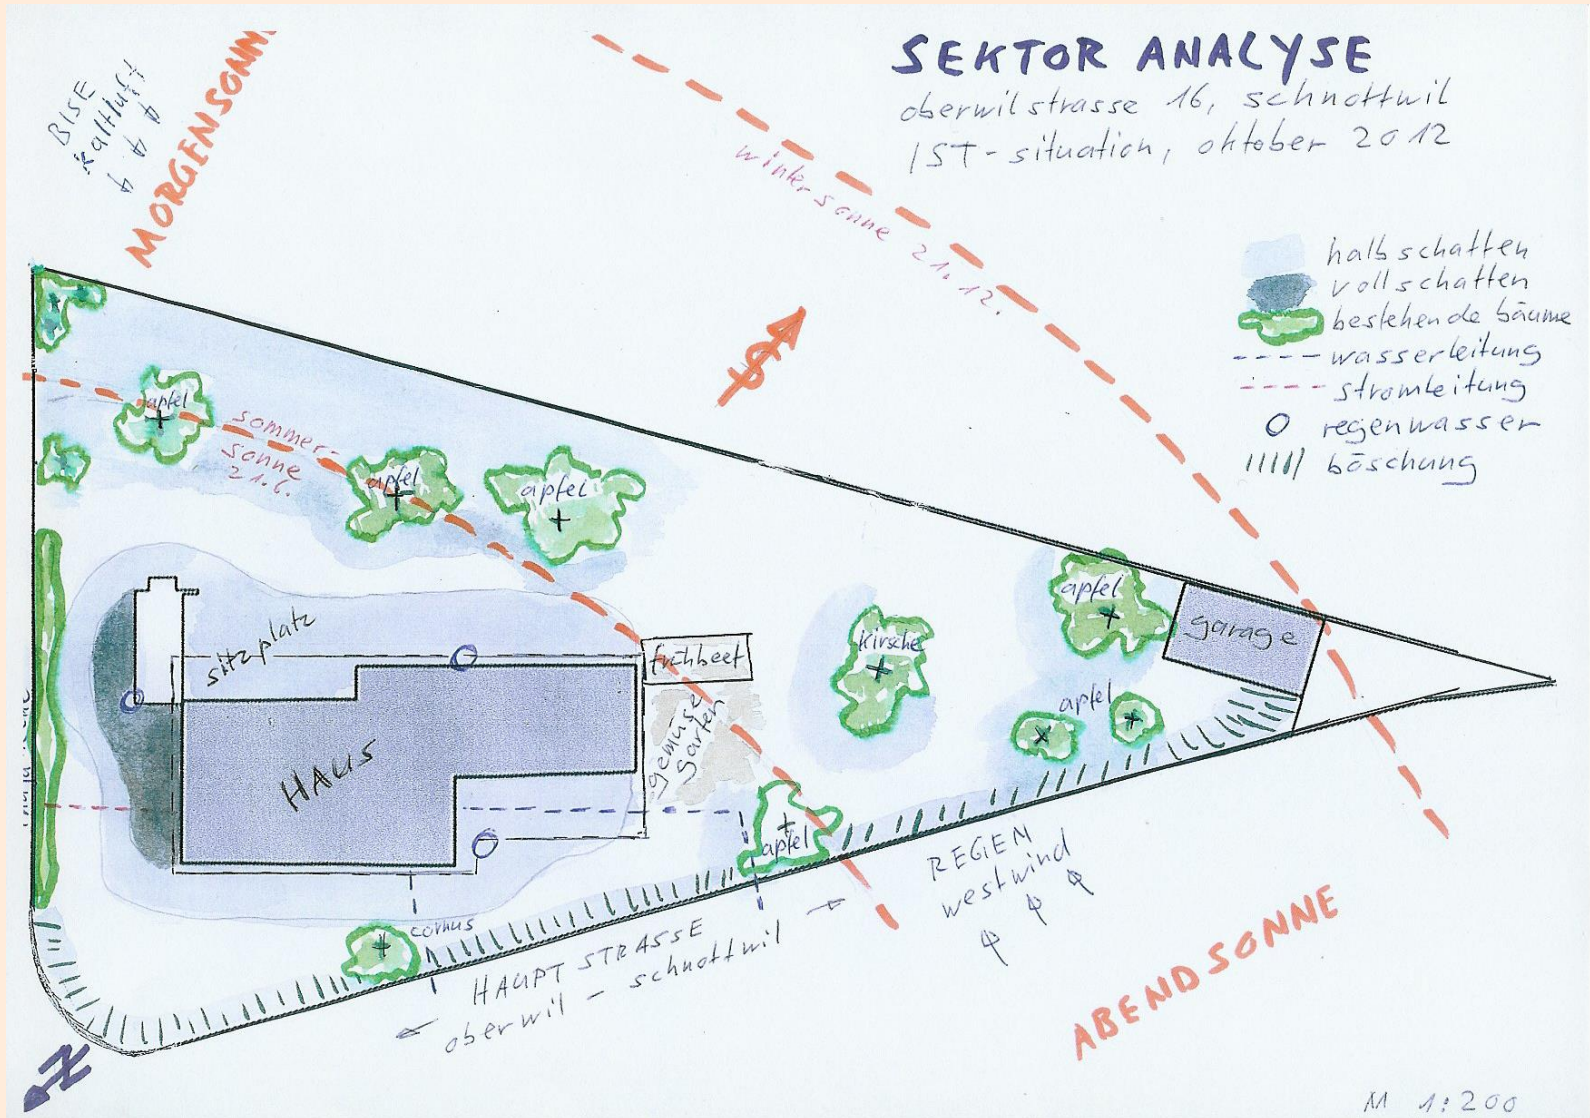 SEKTOR ANALYSE
oberwilstrasse 16, schnottwil
IST-situation, oktober 2012
BISE
kaltluft
MORGENSONNE
wintersonne 21.12.
halbschatten
vollschatten
bestehende bäume
wasserleitung
stromleitung
regenwasser
böschung
S
apfel
sommer-
sonne
21.6.
apfel
apfel
apfel
garage
kirsche
apfel
sitzplatz
frühbeet
gemüse
garten
HAUS
apfel
cornus
HAUPTSTRASSE
oberwil - schnottwil
REGEN
westwind
ABENDSONNE
N
M 1:200